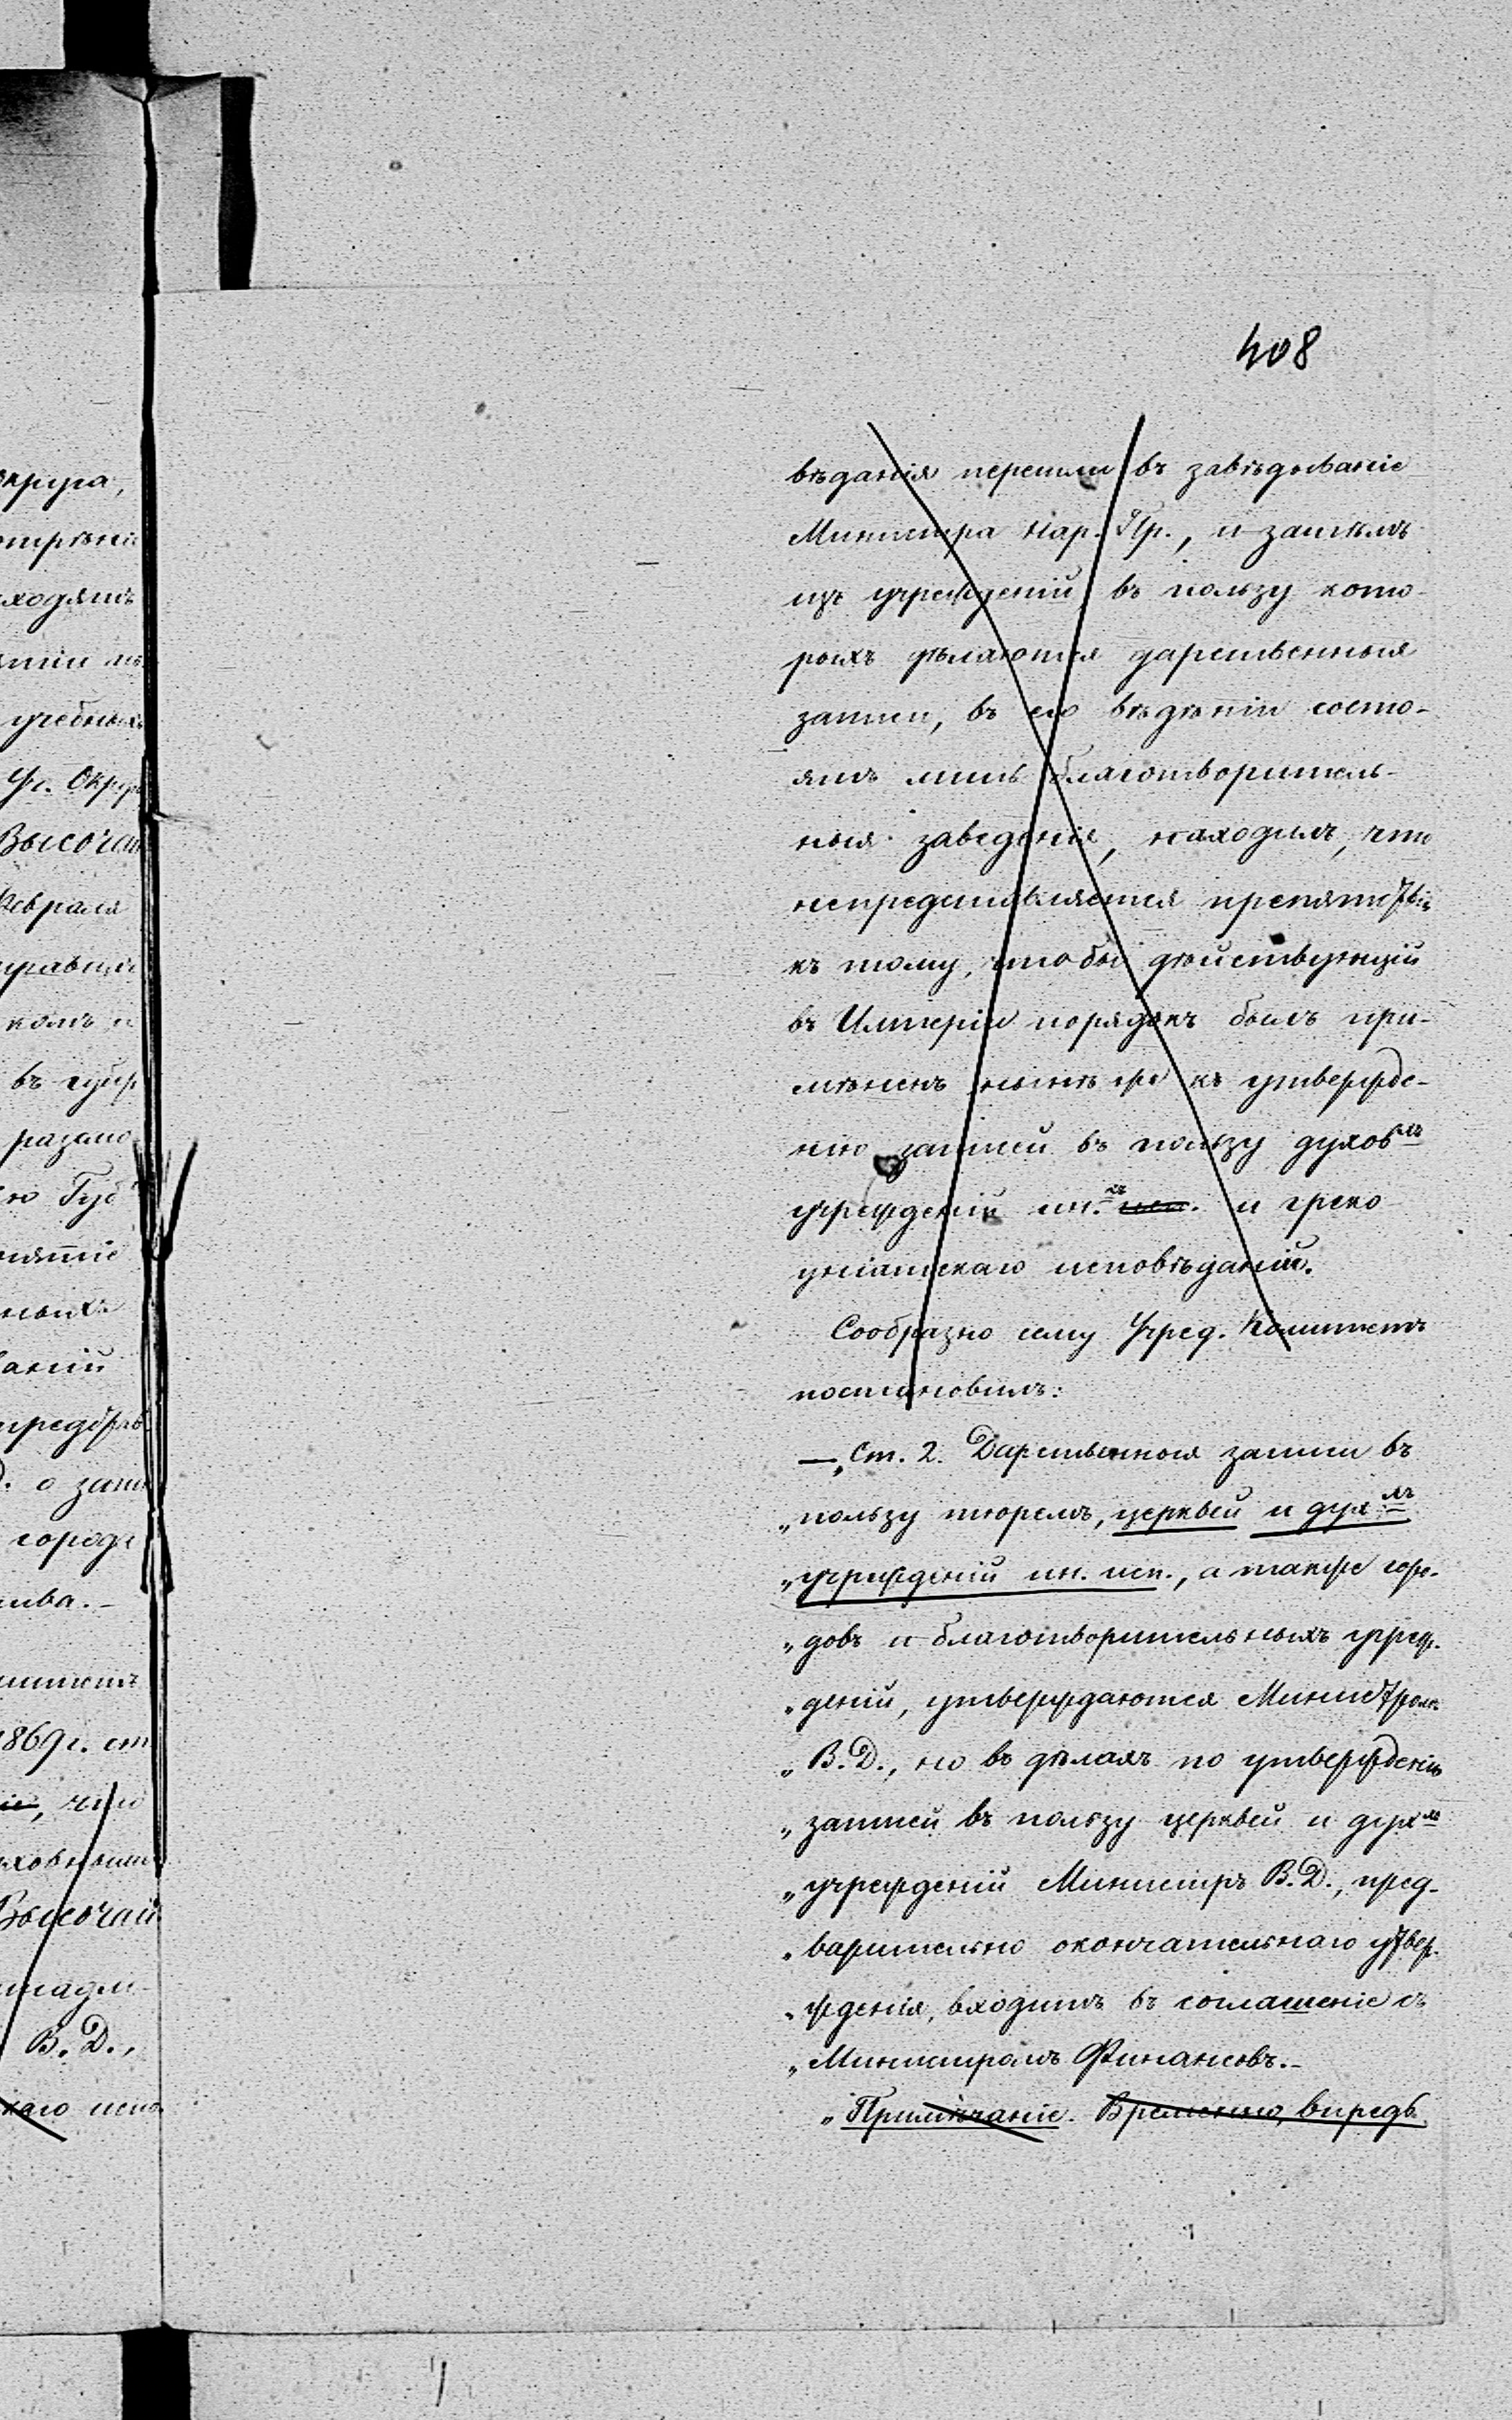 408
вѣданія перешли въ завѣдываніе
Министра Нар. Пр., и затѣмъ
изъ учрежденій въ пользу кото-
рыхъ дѣлаются дарственныя
записи, въ его вѣдѣніи состо-
ятъ лишь благотворитель-
ныя заведенія, находилъ, что
непредставляется препятствія
къ тому, чтобы дѣйствующій
въ Имперіи порядокъ былъ при-
мѣненъ нынѣ же къ утвержде-
нію записей въ пользу духовхъ
учрежденій ин.хъ исп. и греко
уніатскаго исповѣданій.
Сообразно сему Учред. Комитетъ
постановилъ:
— „Ст. 2. Дарственныя записи въ
„пользу тюремъ, церквей и дух.хъ
„учрежденій ин. исп., а также горо-
„довъ и благотворительныхъ учреж-
„деній, утверждаются Министромъ
„В.Д., но въ дѣлахъ по утвержденію
„записей въ пользу церквей и духхъ
„учрежденій Министръ В.Д., пред-
„варительно окончательнаго утвер-
„жденія, входитъ въ соглашеніе съ
„Министромъ Финансовъ.—
„Примѣчаніе. Временно, впредь
округа,
ходятъ
учебныхъ
Уч. Окру
Высочай
Февраля
въ губер
ніятіе
ныхъ
ваній
о запи
города
1869 г. ст
что
ховными
Высочай
В. Д.,
каго испо